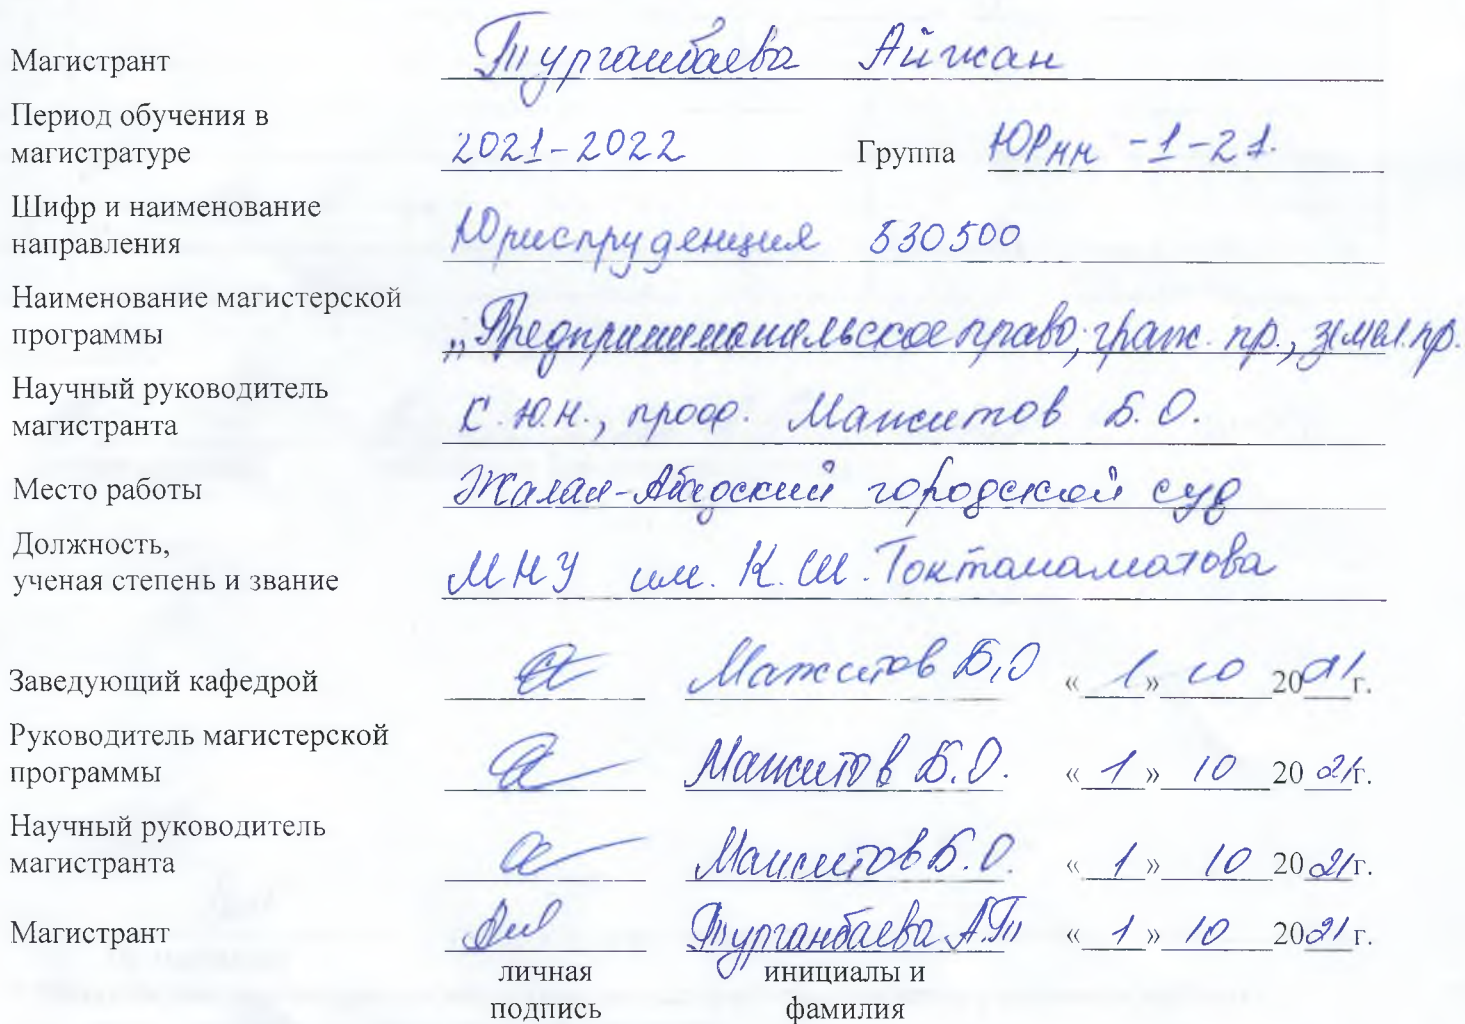 Магистрант Турганбаева Айжан
Период обучения в
магистратуре 2021-2022 Группа ЮРнн -1-21.
Шифр и наименование
направления Юриспруденция 530500
Наименование магистерской
программы „Предпринимательское право, граж. пр., земел. пр.
Научный руководитель
магистранта К.ю.н., проф. Мажитов Б.О.
Место работы Жалал-Абадский городской суд
Должность,
ученая степень и звание МНУ им. К.Ш. Токтомаматова
Заведующий кафедрой Мажитов Б.О « 1 » 10 2021 г.
Руководитель магистерской
программы Мажитов Б.О. « 1 » 10 2021г.
Научный руководитель
магистранта Мажитов Б.О. « 1 » 10 2021г.
Магистрант Турганбаева А.Т « 1 » 10 2021 г.
личная инициалы и
подпись фамилия